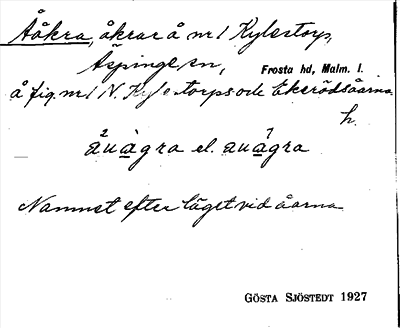 Åâkra, åkrar å nr 1 Kylestorp,
Äspinge sn,
Frosta hd, Malm. l.
å fig. nr 1 N. Kylestorps och Ekerödsåarna
h.
äuàgra el. äuagra
Namnet efter läget vid åarna
GÖSTA SJÖSTEDT 1927